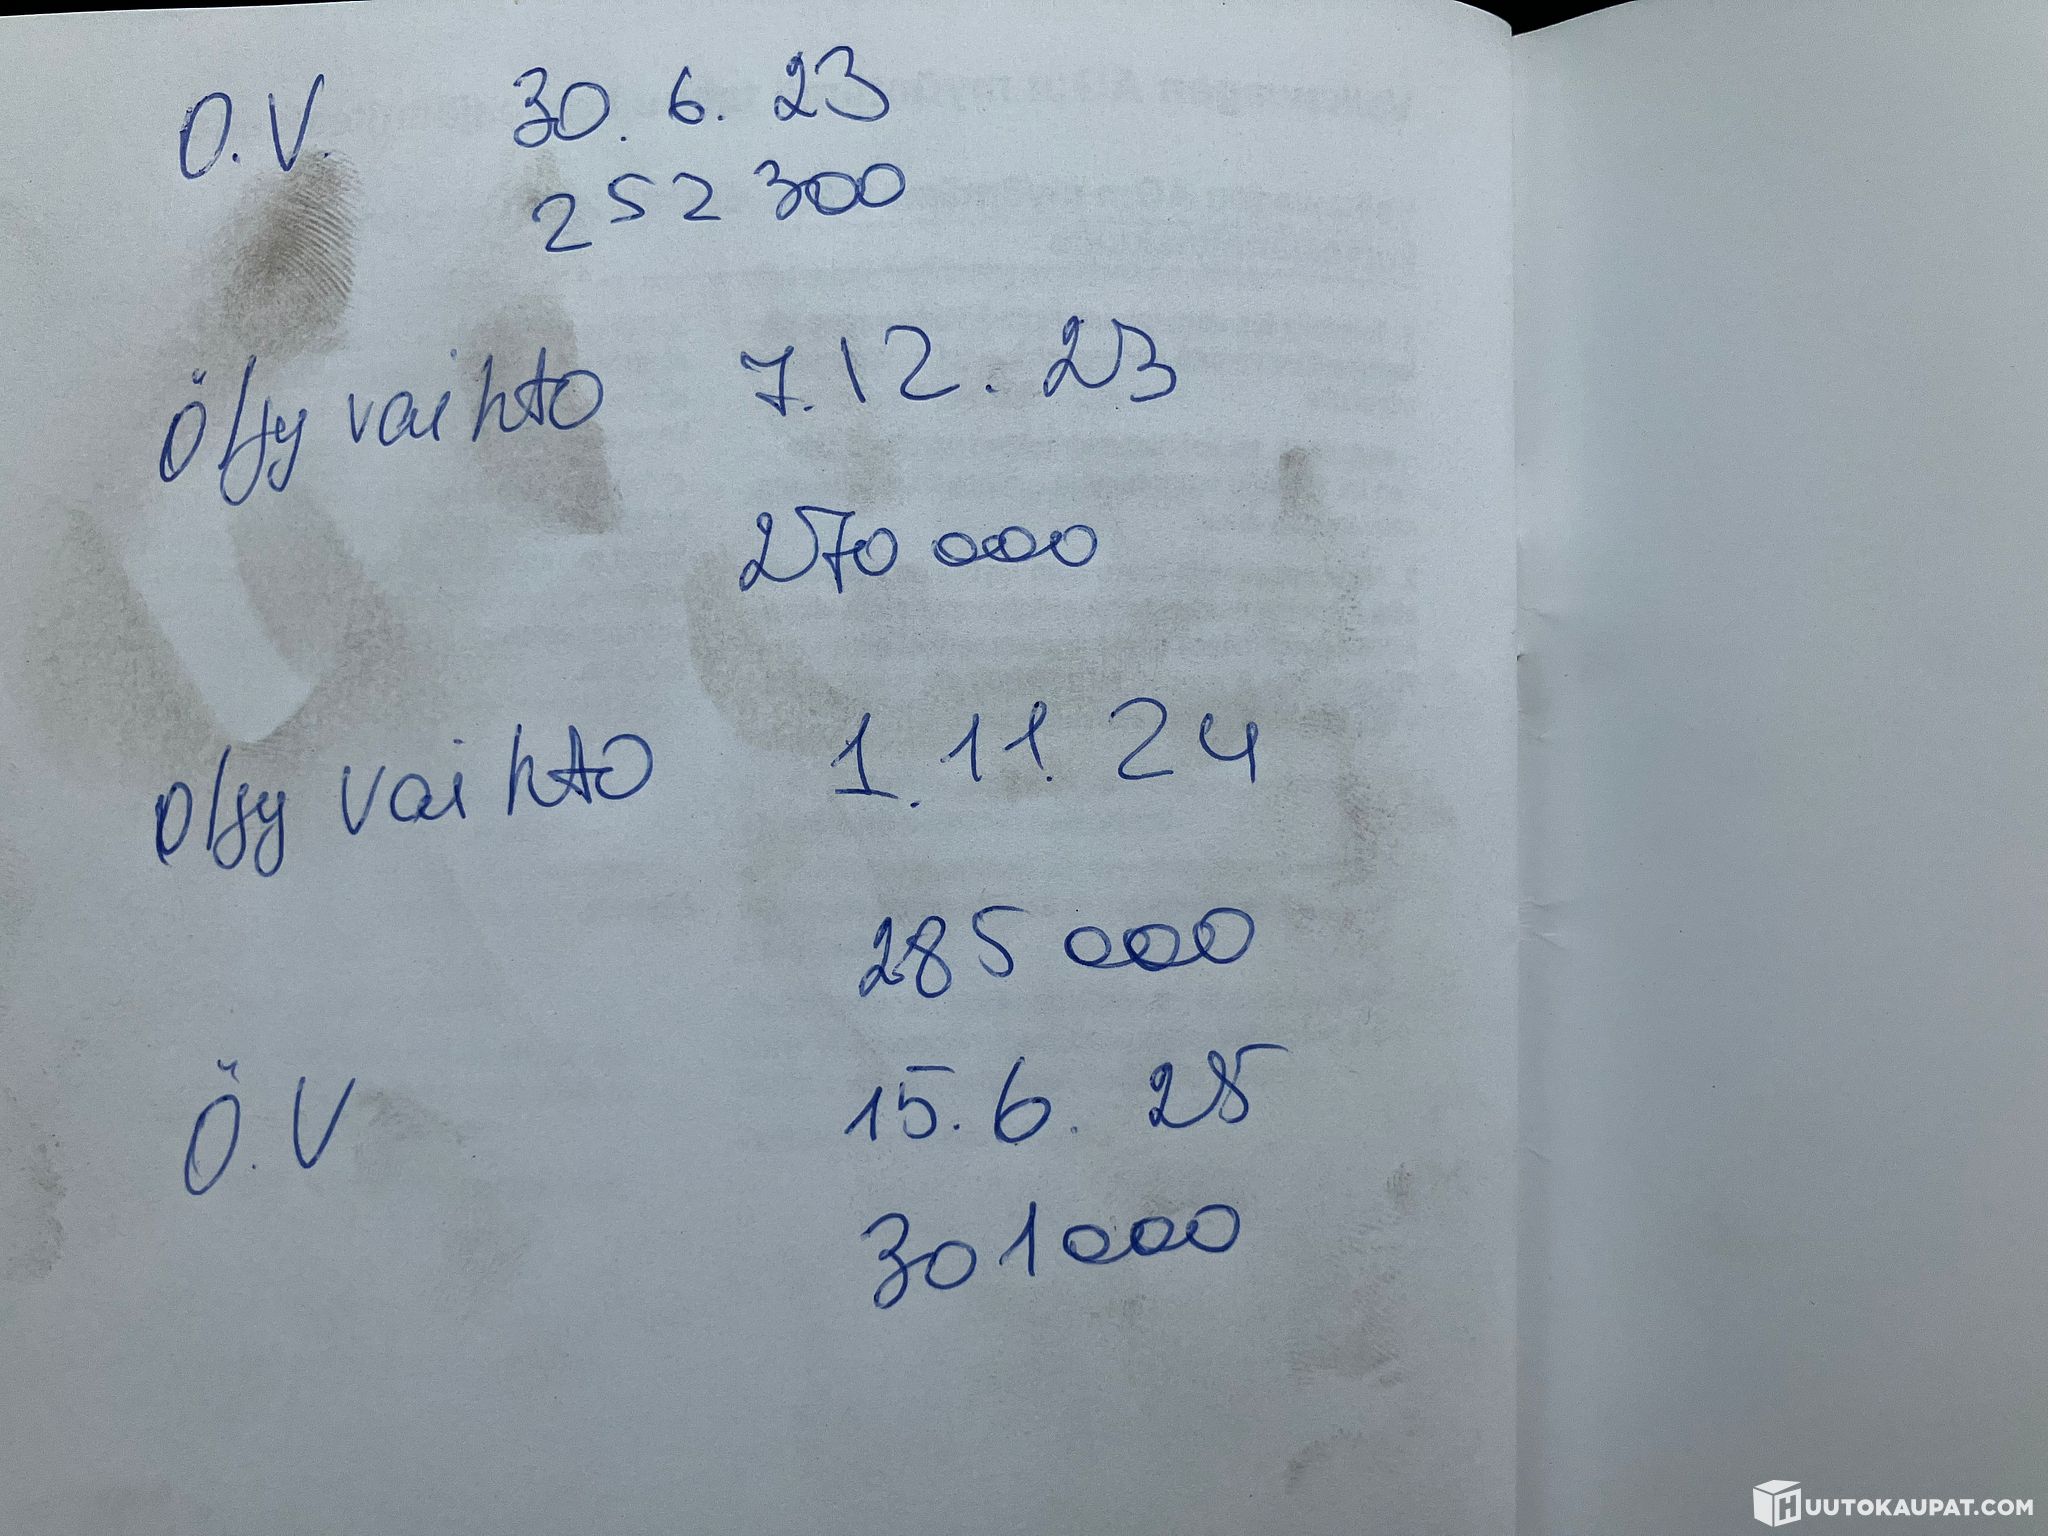 O.V. 30.6.23
252 300
Öljy vaihto 7.12.23
270 000
Oljy vaihto 1.11.24
285 000
Ö.V 15.6.25
301000
HUUTOKAUPAT.COM